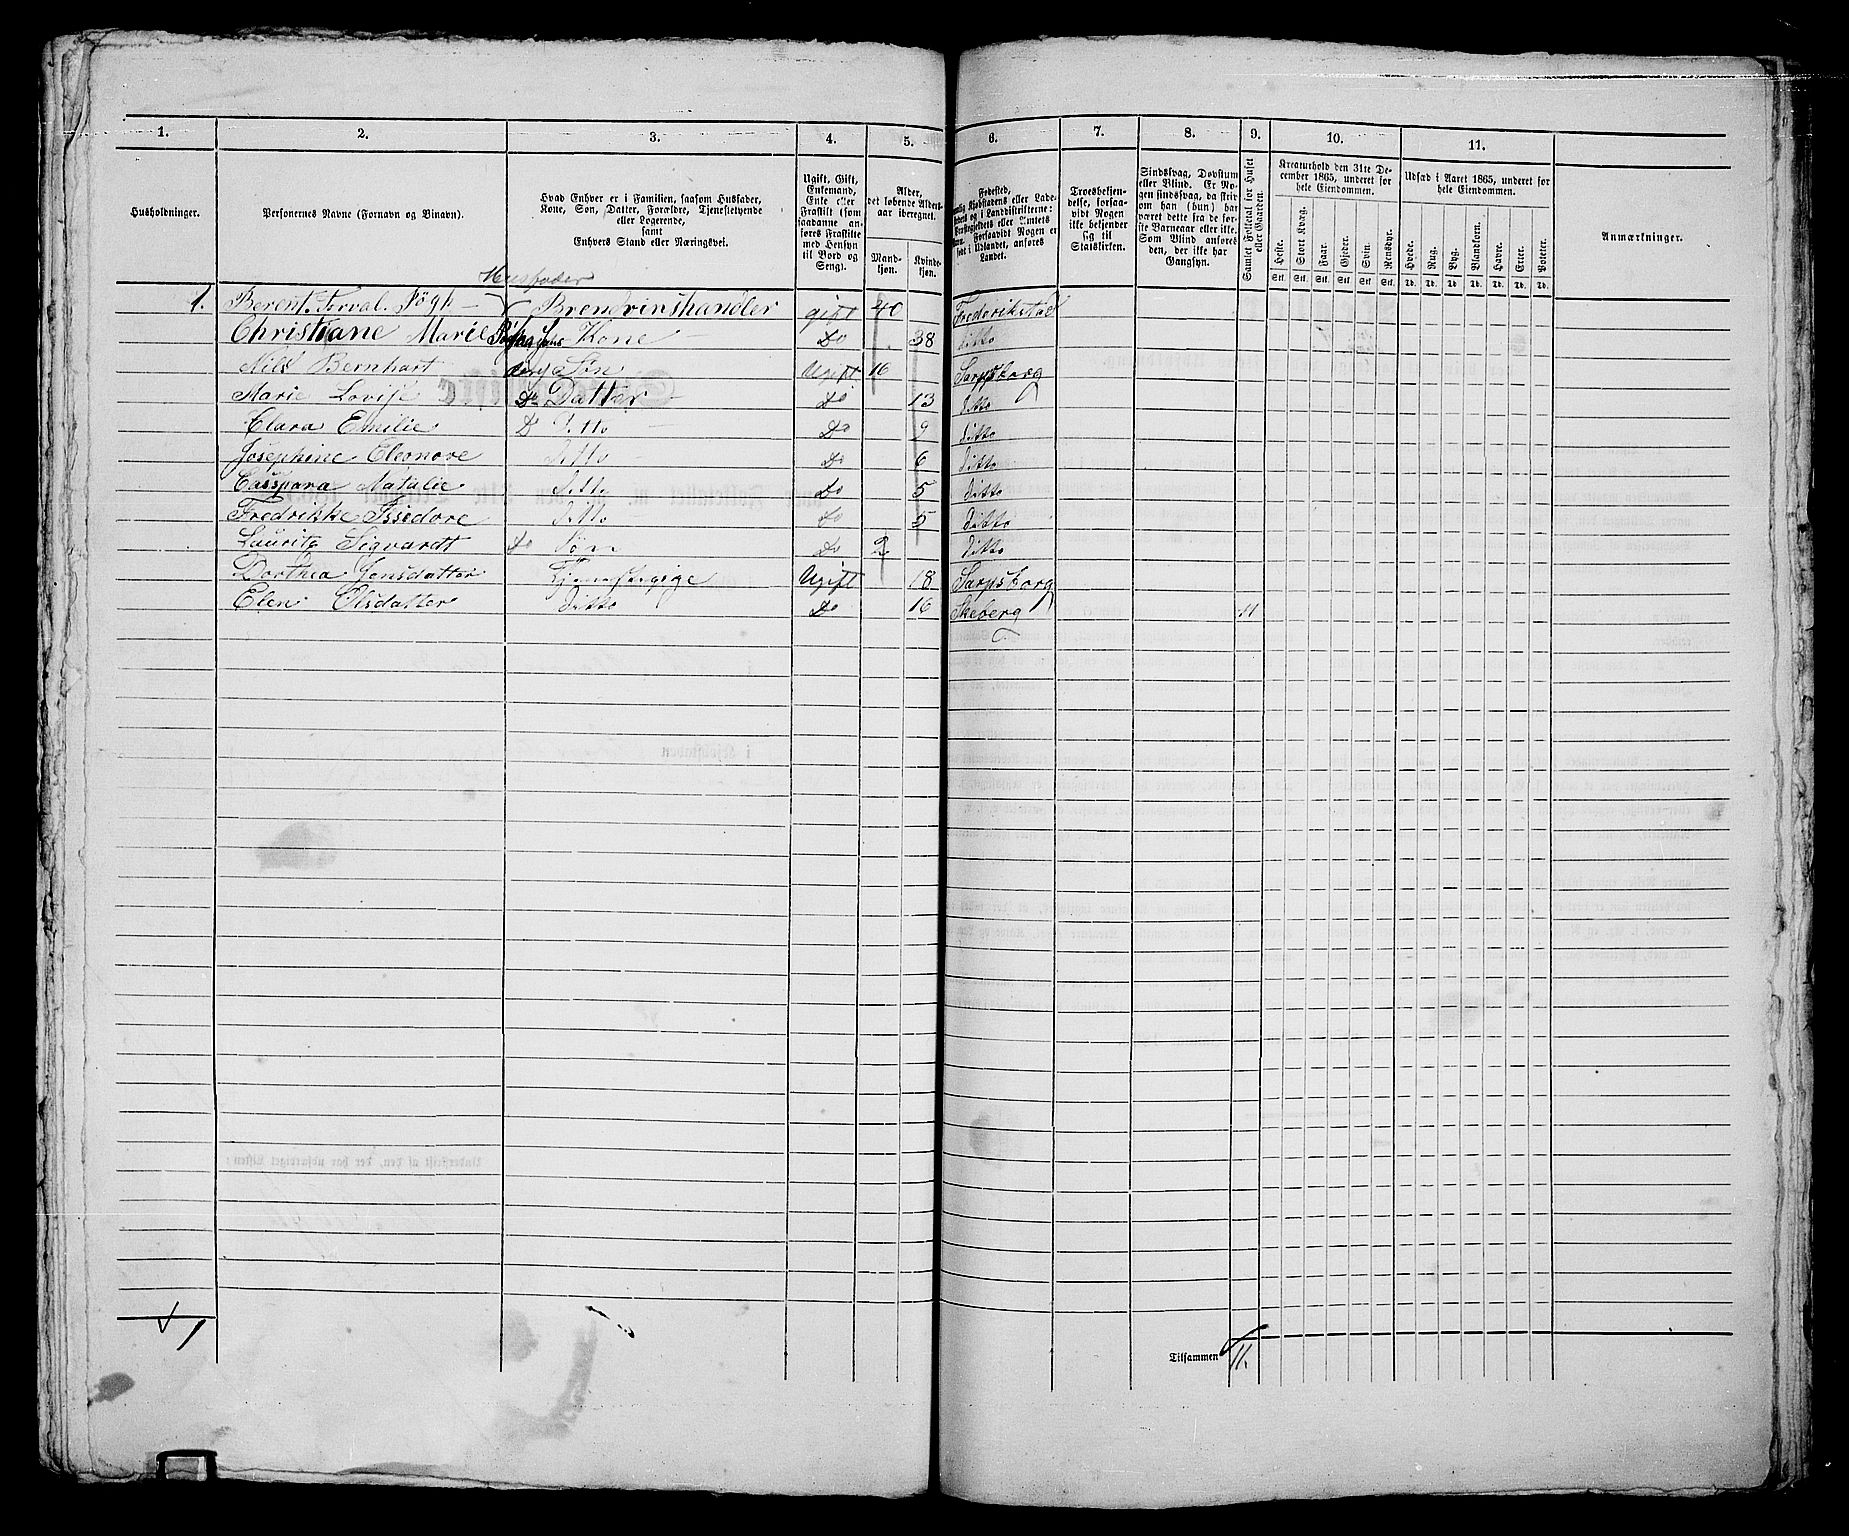 1. 2. 3. 4. 5. 6. 7. 8. 9. 10. 11.
Husholdninger.
Personernes Navne (Fornavn og Binavn).
Hvad Enhver er i Familien, saasom Husfader,
Kone, Søn, Datter, Forældre, Tjenestetyende
eller Logerende,
samt
Enhvers Stand eller Næringsvei.
Ugift, Gift,
Enkemand,
Enke eller
Fraskilt (som
saadanne an-
føres Fraskilte
med Hensyn
til Bord og
Seng).
Alder,
det løbende Alders-
aar iberegnet.
Mand-
kjøn.
Kvinde-
kjøn.
Fødested,
Kjøbstadens eller Lade-
og i Landdistrikterne:
Præstegjeldets eller Amtets
Navn. Forsaavidt Nogen er
født i Udlandet, anføres
Landet.
Troesbekjen-
delse, forsaa-
vidt Nogen
ikke bekjender
sig til
Statskirken.
Sindssvag, Døvstum
eller Blind. Er No-
gen sindssvag, da skrives
om han (hun) har
været dette fra de før-
ste Barneaar eller ikke.
Som Blind anføres
den, der ikke har
Gangsyn.
Samlet Folketal for Huset
eller Gaarden.
Kreaturhold den 31te De-
cember 1865, underet for
hele Eiendommen.
Heste. Stort Kvæg. Faar. Gjeder. Svin. Rensdyr.
Stk. Stk. Stk. Stk. Stk. Stk.
Udsæd i Aaret 1865, underet for
hele Eiendommen.
Hvede. Rug. Byg. Blandkorn. Havre. Erter. Poteter.
Td. Td. Td. Td. Td. Td. Td.
Anmærkninger.
Husfader
1. Berent Torval Høgh Brendvinshandler gift 40 Frederikstad
Christiane Marie Kone Do 38 ditto
Nils Bernhart Søn Ugift 16 Sarpsborg
Marie Lovise D Datter Do 13 ditto
Clara Emilie D Ditto Do 9 ditto
Josephine Eleonore Ditto Do 6 ditto
Casspara Natalie Ditto Do 5 ditto
Fredrikke Issedore ditto do 5 ditto
Lauritz Sigvardt Do Søn Do 2 ditto
Dorthea Jensdatter Tjenestepige Ugift 18 Sarpsborg
Elen Olsdatter Ditto Do 16 Skeberg 11
1
Tilsammen 11.